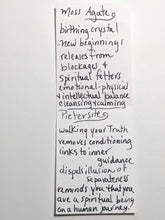 Moss Agate
birthing crystal
new beginnings
releases from
blockages &
spiritual fetters
emotional - physical
& intellectual balance
cleansing & calming
Pietersite
walking your Truth
removes conditioning
links to inner
guidance
dispels illusion of
separateness
reminds you that you
are a spiritual being
on a human journey.